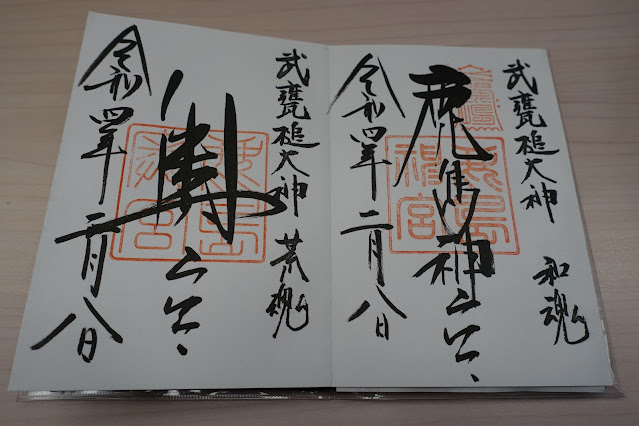 武甕槌大神 和魂
鹿島神宮
鹿島神宮
令和四年二月八日
武甕槌大神 荒魂
奥宮
令和四年二月八日